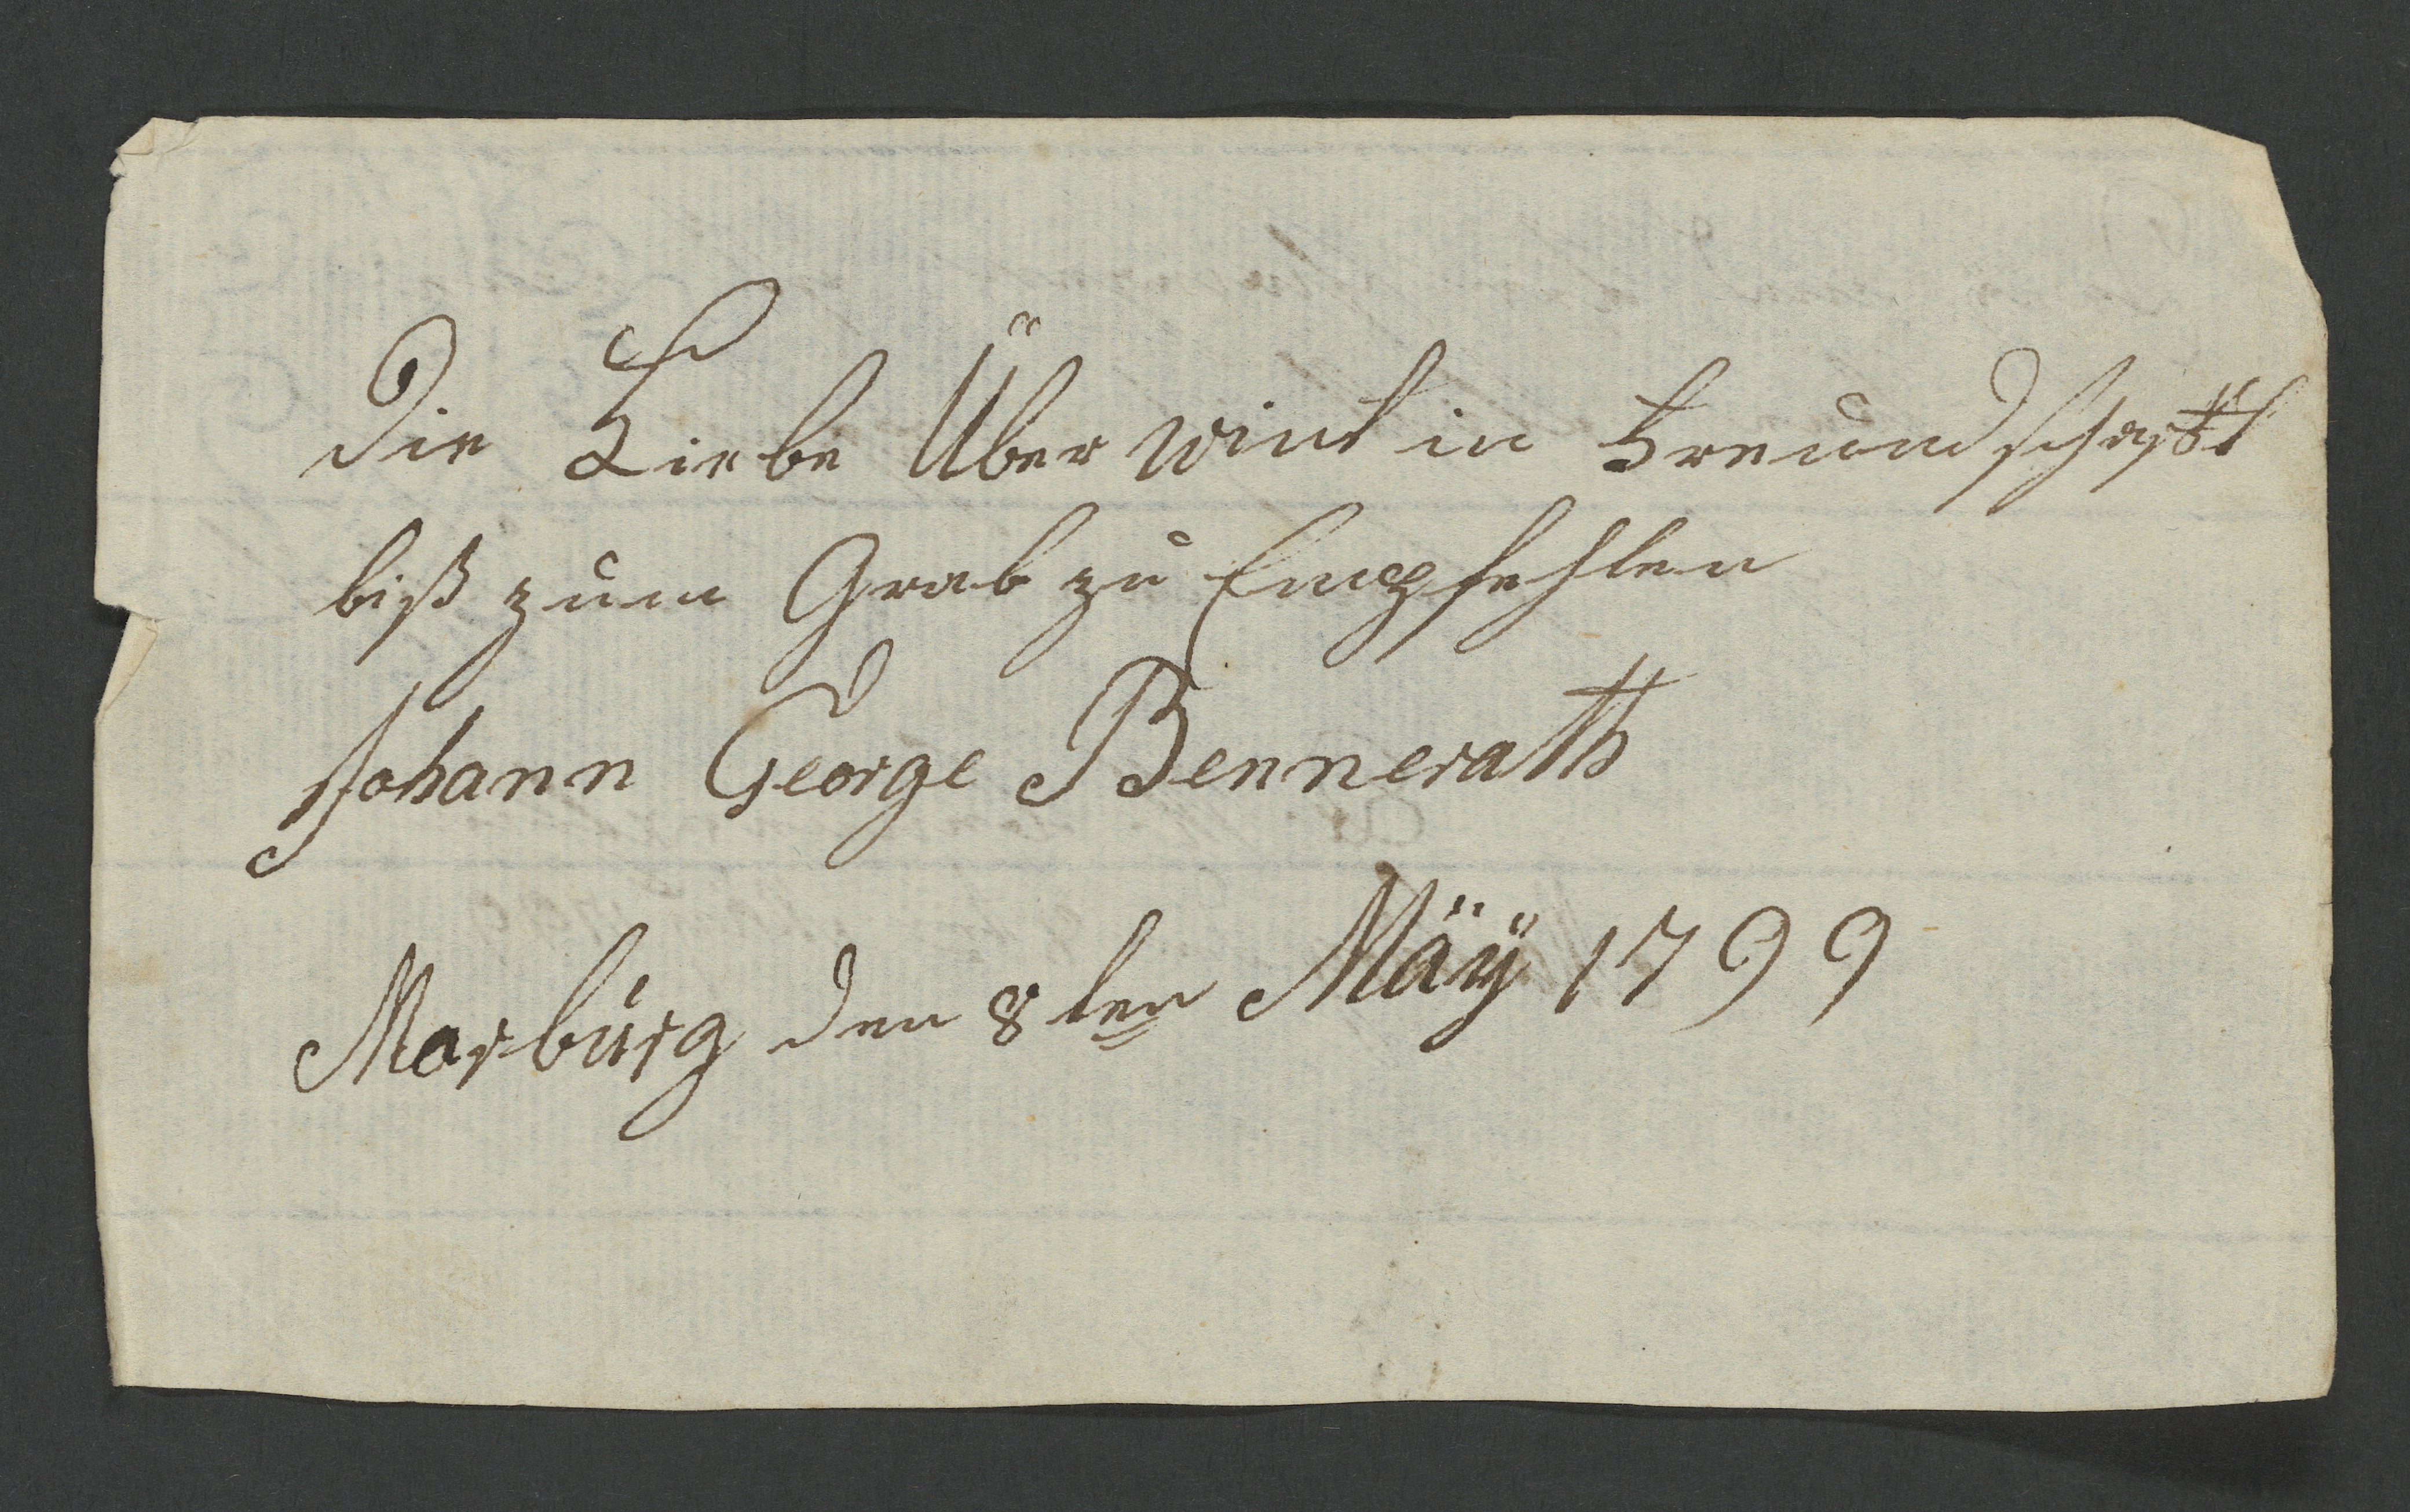 Die Liebe Überwint in Freundschafft
biß zum Grab zu Empfehlen
Johann George Bennerath
Marburg den 8ten Mäÿ 1799